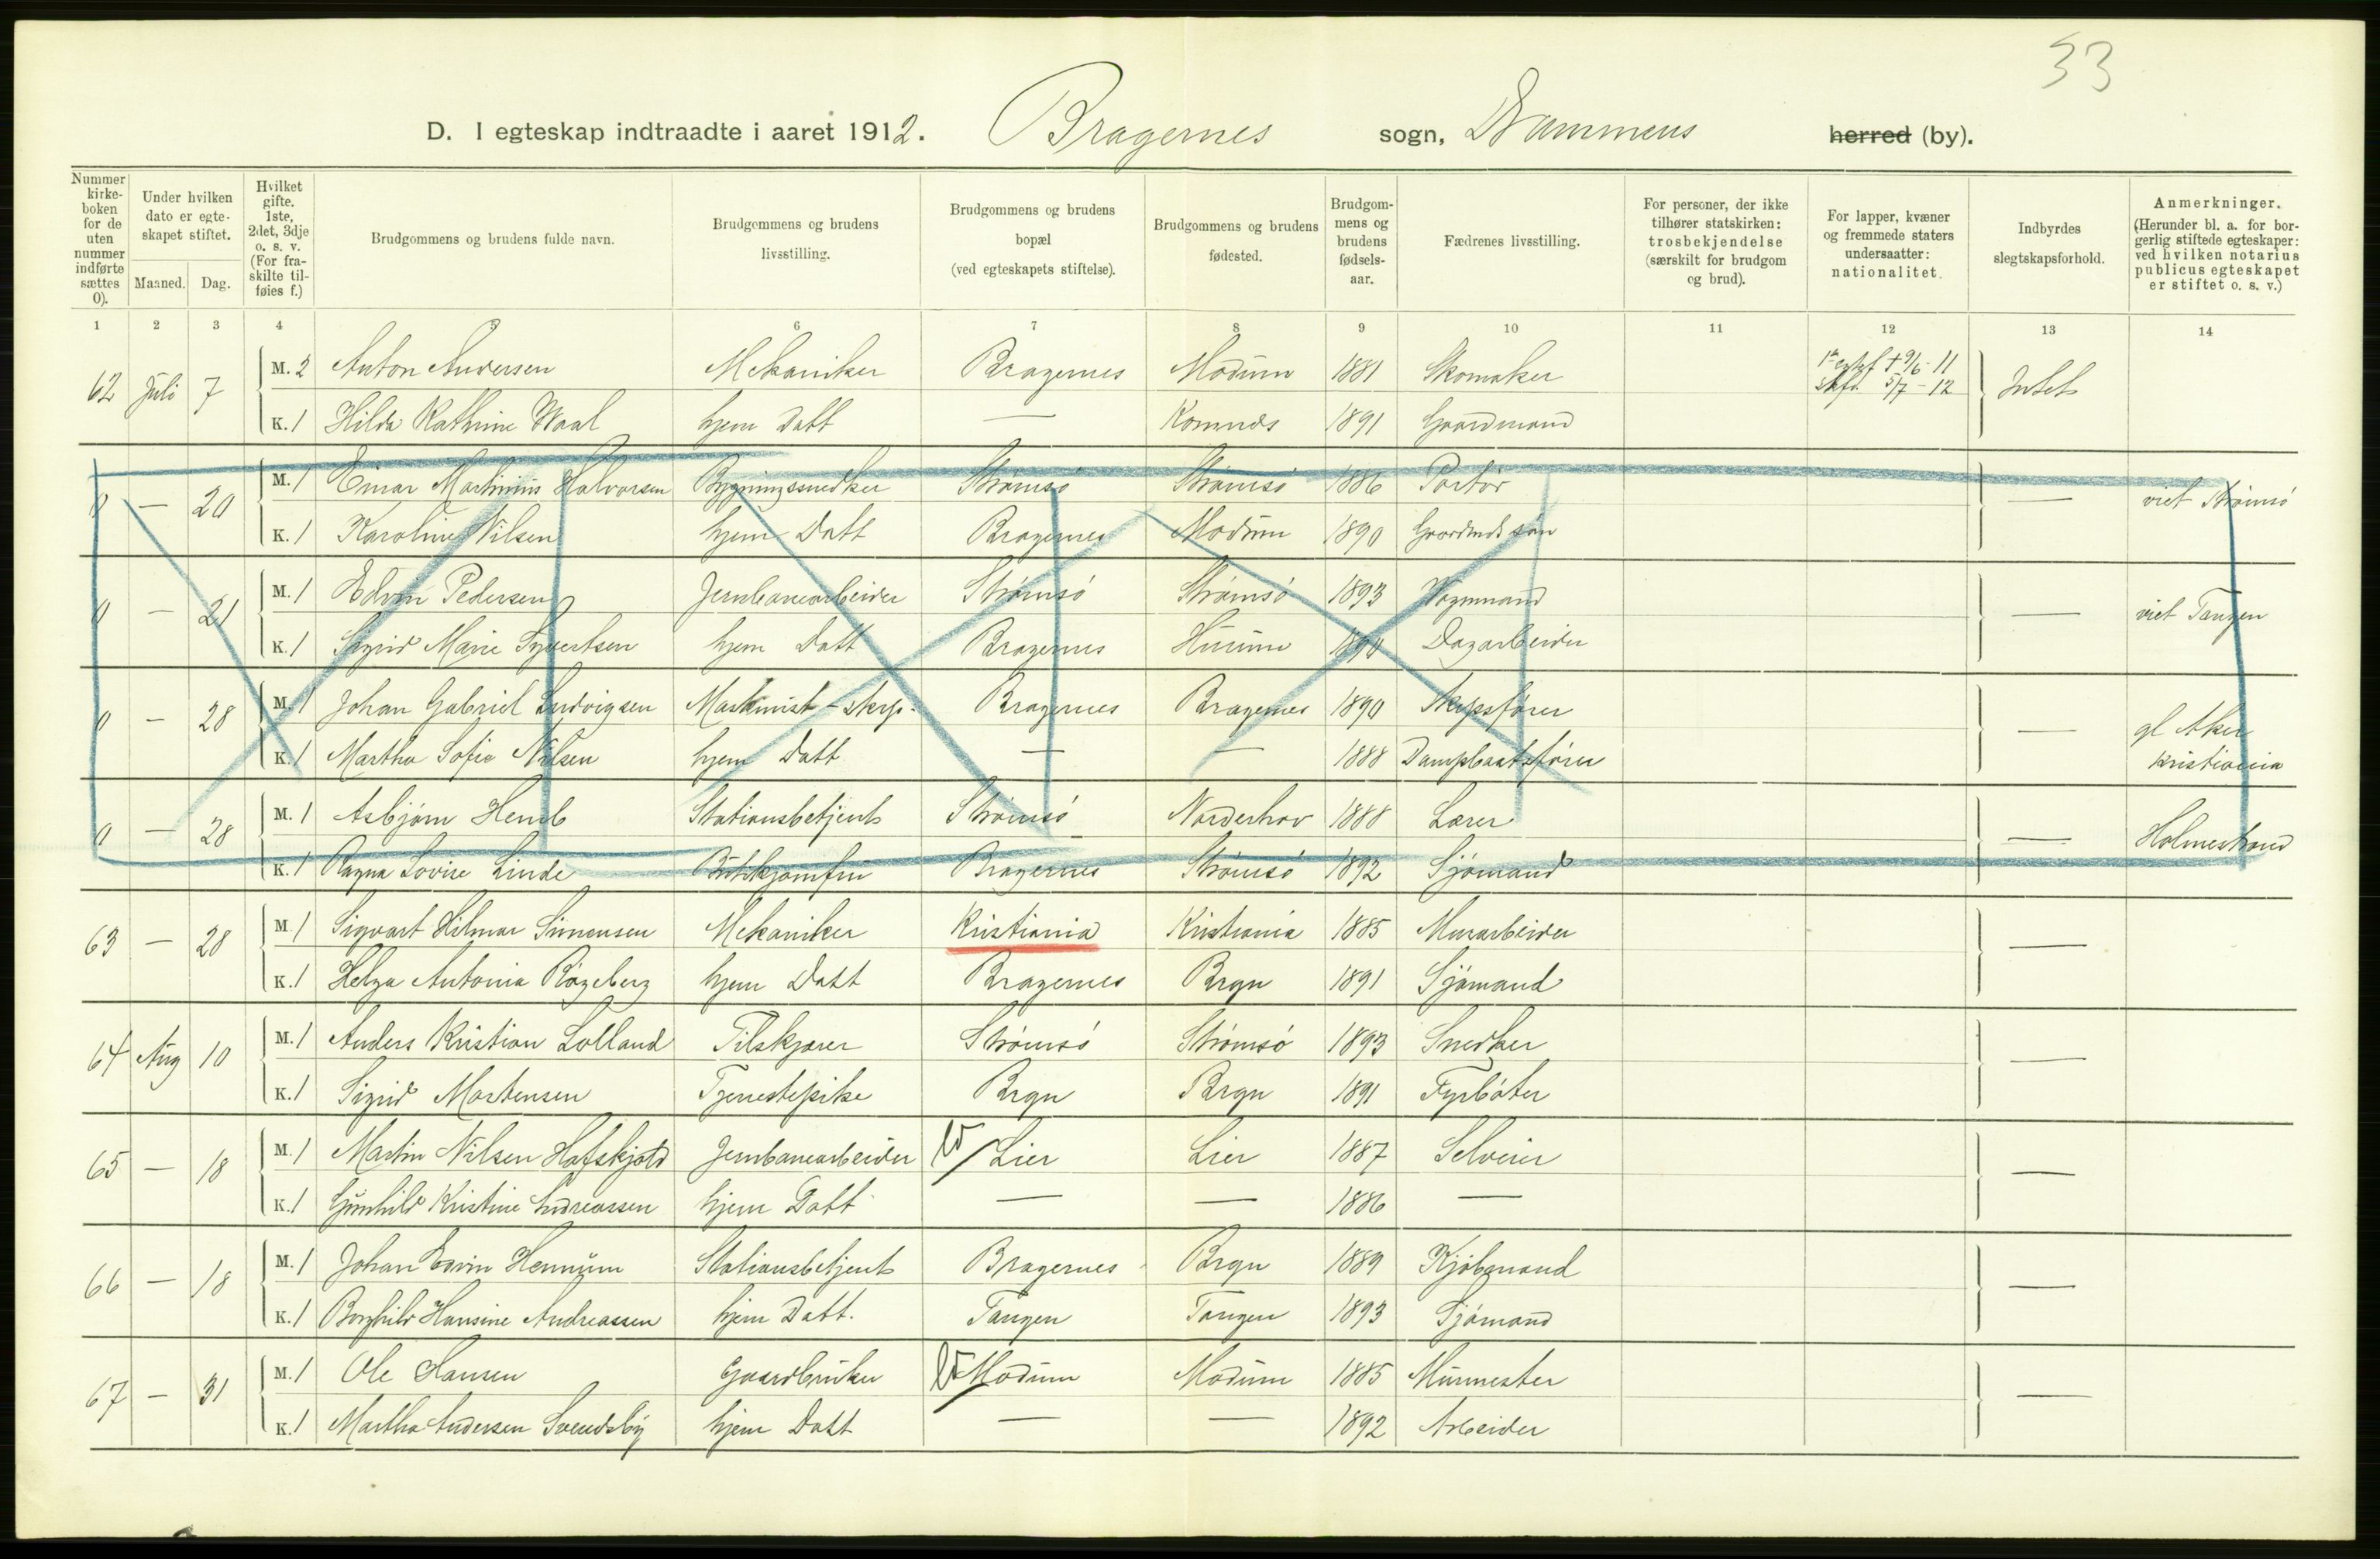 33
D. I egteskap indtraadte i aaret 1912. Bragernes sogn, Drammens herred (by).
Nummer kirkeboken for de uten nummer indførte sættes 0).
Under hvilken dato er egteskapet stiftet.
Maaned. Dag.
Hvilket gifte. 1ste, 2det, 3dje o. s. v. (For fraskilte tilføies f.)
Brudgommens og brudens fulde navn.
Brudgommens og brudens livsstilling.
Brudgommens og brudens bopæl (ved egteskapets stiftelse).
Brudgommens og brudens fødested.
Brudgommens og brudens fødselsaar.
Fædrenes livsstilling.
For personer, der ikke tilhører statskirken: trosbekjendelse (særskilt for brudgom og brud).
For lapper, kvæner og fremmede staters undersaatter: nationalitet.
Indbyrdes slegtskapsforhold.
Anmerkninger. (Herunder bl. a. for borgerlig stiftede egteskaper: ved hvilken notarius publicus egteskapet er stiftet o. s. v.)
1 2 3 4 5 6 7 8 9 10 11 12 13 14
62 Juli 7 M. 2 Anton Andersen Mekaniker Bragernes Modum 1881 Skomaker † 9/6 - 11 5/7 - 12 Intet
K. 1 Hilda Kathrine Waal hjem Datt — Komnds 1891 Gaardmand
0 — 20 M. 1 Einar Martinius Halvorsen Bygningssnedker Strømsø Strømsø 1886 Portør — viet Strømsø
K. 1 Karoline Nilsen hjem Datt Bragernes Modum 1890 Gaardmdssøn
0 — 21 M. 1 Edvin Pedersen Jernbanearbeider Strømsø Strømsø 1893 Vognmand — viet Tangen
K. 1 Sigrid Marie Syvertsen hjem Datt Bragernes Hurum 1890 Dagarbeider
0 — 28 M. 1 Johan Gabriel Ludvigsen Maskinist - skrp. Bragernes Bragernes 1890 Skipsfører — gl Aker
K. 1 Martha Sofie Nilsen hjem Datt — — 1888 Dampbaatsfører Kristiania
0 — 28 M. 1 Asbjørn Hemb Stationsbetjent Strømsø Norderhov 1888 Lærer — Holmestrand
K. 1 Ragna Lovise Linde Butikjomfru Bragernes Strømsø 1892 Sjømand
63 — 28 M. 1 Sigvart Hilmar Simensen Mekaniker Kristiania Kristiania 1885 Murarbeider —
K. 1 Helga Antonia Røgeberg hjem Datt Bragernes Brgn 1891 Sjømand
64 Aug 10 M. 1 Anders Kristian Lolland Tilskjærer Strømsø Strømsø 1893 Snedker —
K. 1 Sigrid Martensen Tjenestepike Brgn Brgn 1891 Fyrbøter
65 — 18 M. 1 Martin Nilsen Hafskjold Jernbanearbeider Lier Lier 1887 Selveier —
K. 1 Gunhild Kristine Andreassen hjem Datt — — 1886 —
66 — 18 M. 1 Johan Edvin Hennum Stationsbetjent Bragernes Brgn 1889 Kjøbmand —
K. 1 Borghild Hansine Andreassen hjem Datt. Tangen Tangen 1893 Sjømand
67 — 31 M. 1 Ole Hansen Gaardbruker Modum Modum 1885 Murmester —
K. 1 Martha Andersen Svendsby hjem Datt — — 1892 Arbeider